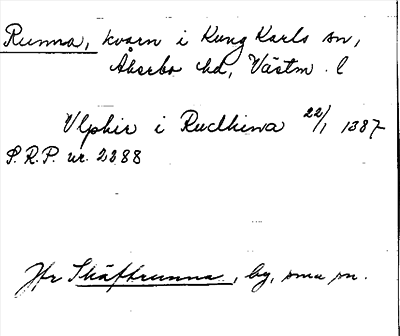 Runna, kvarn i Kung Karls sn,
Åkerbo hd, Västm. l
Vlphir i Rudhinna 22/1 1387
S.R.P. nr. 2388
Jfr Skäftrunna, by, sma sn.